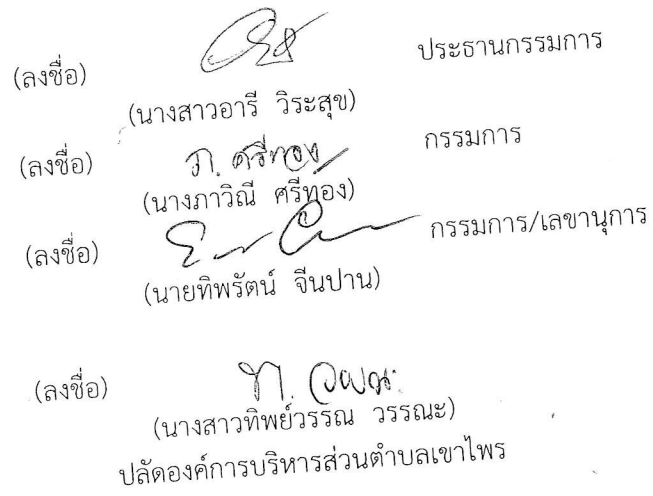 (ลงชื่อ) ประธานกรรมการ
(นางสาวอารี วิระสุข)
(ลงชื่อ) ภ. ศรีทอง กรรมการ
(นางภาวิณี ศรีท้อง)
(ลงชื่อ) กรรมการ/เลขานุการ
(นายทิพรัตน์ จีนปาน)
(ลงชื่อ)
(นางสาวทิพย์วรรณ วรรณะ)
ปลัดองค์การบริหารส่วนตำบลเขาไพร